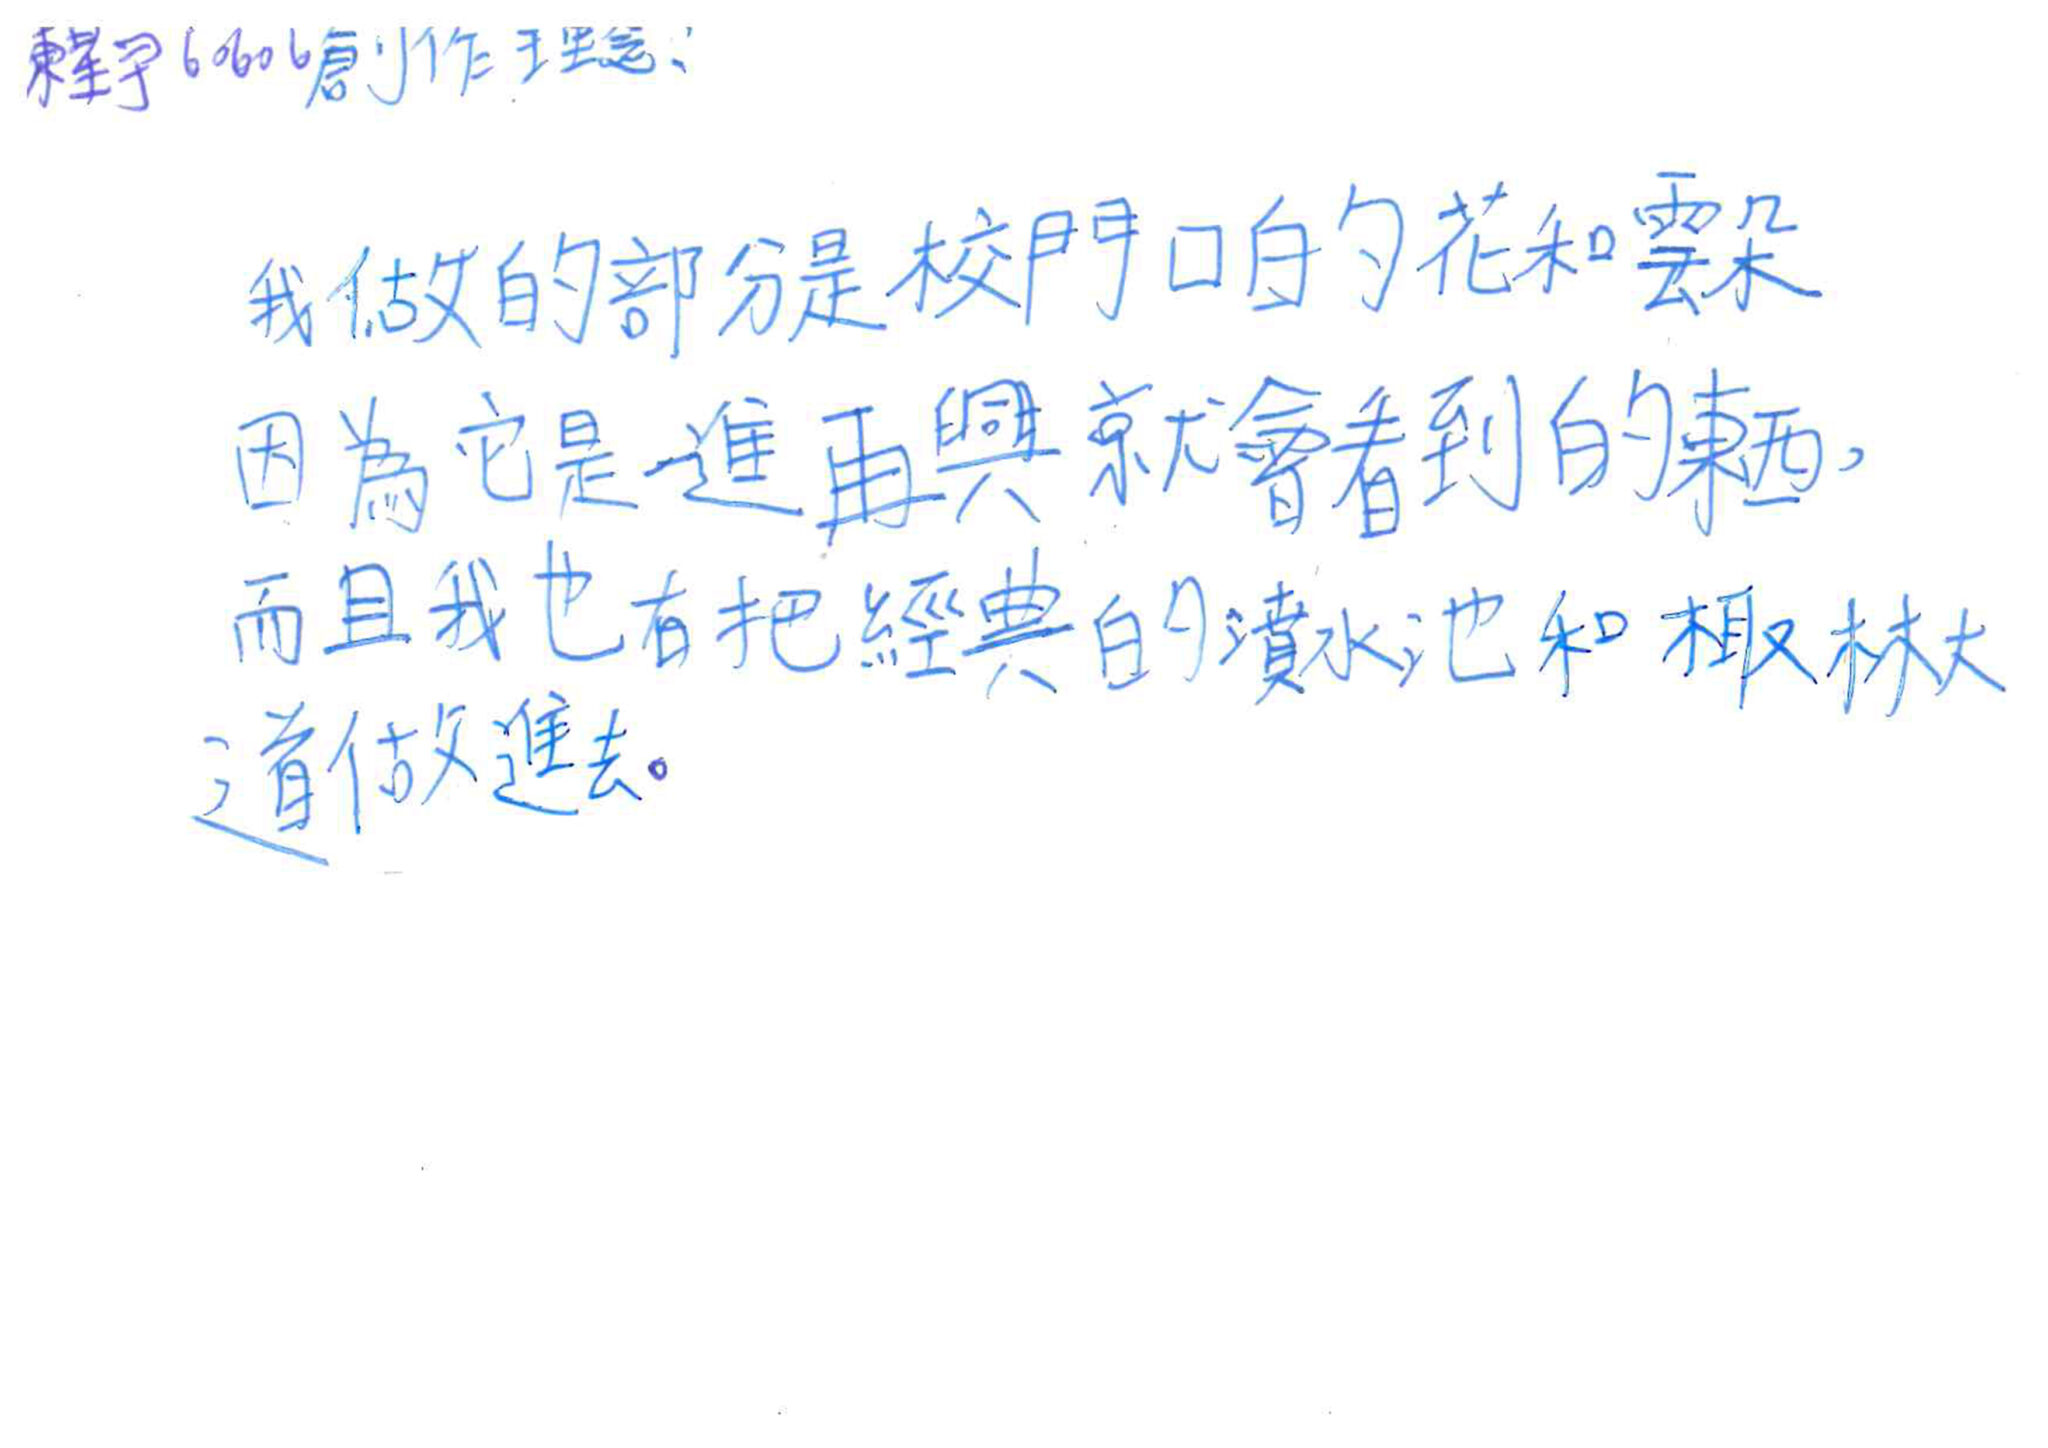 60606創作理念:
我做的部分是校門口的花和雲朵
因為它是一進再興就會看到的東西,
而且我也有把經典的濆水池和棷林大
道做進去。